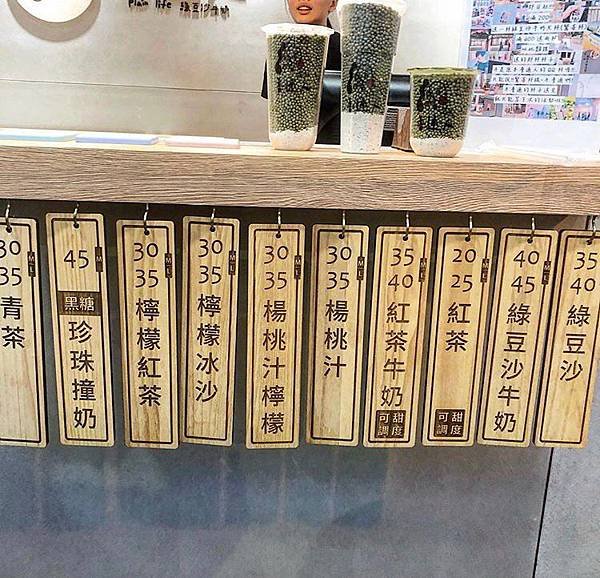 plain life 綠豆沙牛奶
35
40
綠豆沙
40
45
M
L
綠豆沙牛奶
20
25
M
L
紅茶
甜度
可調
35
40
M
L
紅茶牛奶
甜度
可調
30
35
M
L
楊桃汁
30
35
M
L
楊桃汁檸檬
30
35
M
L
檸檬冰沙
30
35
M
L
檸檬紅茶
45
黑糖
珍珠撞奶
30
35
M
L
青茶